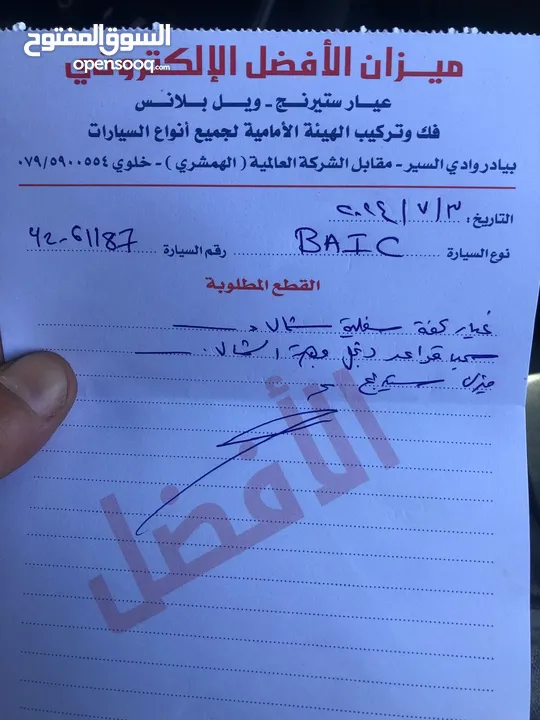 السوق المفتوح
opensooq.com
ميزان الأفضل الإلكتروني
عيار ستيرنج - ويل بلانس
فك وتركيب الهيئة الأمامية لجميع أنواع السيارات
بيادر وادي السير - مقابل الشركة العالمية (الهمشري) - خلوي ٠٧٩/٥٩٠٠٥٥٤
التاريخ: ٢٠٢٤/٧/٣
نوع السيارة BAIC رقم السيارة 42-61187
القطع المطلوبة
غيار كفة سفلية شمال
قواعد دبل وجهة الشمال
ميزان ستيرنج
الأفضل